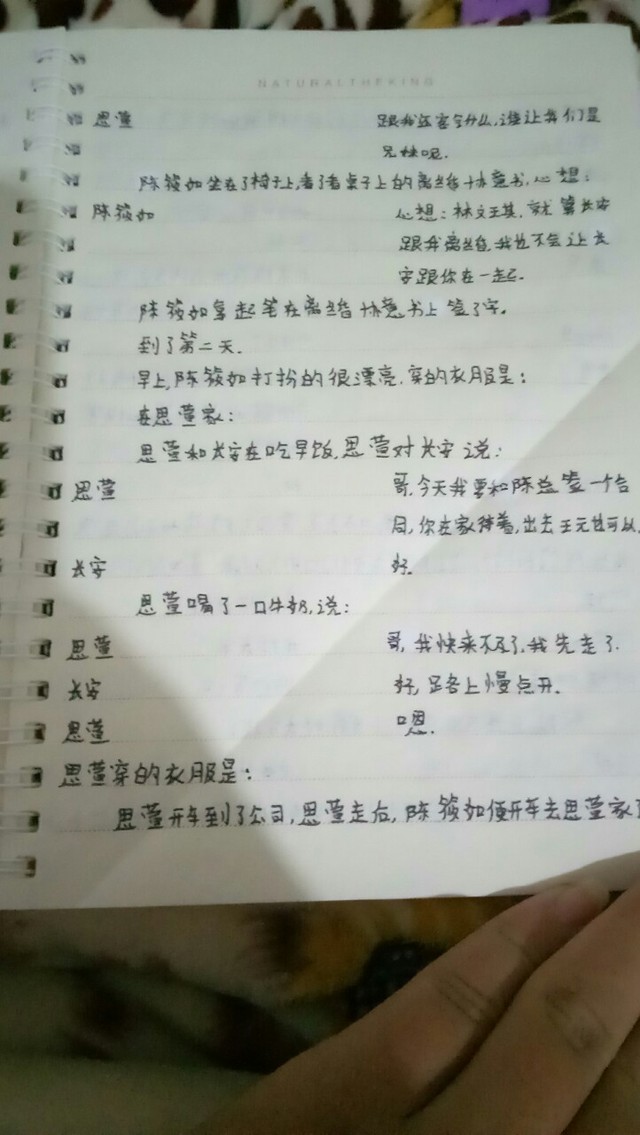 NATURALTHEKING
思萱 跟我还客气什么,谁让我们是
兄妹呢.
陈筱如坐在了椅子上,看了看桌子上的离婚协意书,心想:
陈筱如 心想:林文王其,就算长安
跟我离婚,我也不会让长
安跟你在一起.
陈筱如拿起笔在离婚协意书上签了字.
到了第二天.
早上,陈筱如打扮的很漂亮.穿的衣服是:
在思萱家:
思萱和长安在吃早饭,思萱对长安说:
思萱 哥,今天我要和陈益签一个合
同,你在家待着,出去玩也可以
长安 好.
思萱喝了一口牛奶,说:
思萱 哥,我快来不及了,我先走了.
长安 好,路上慢点开.
思萱 嗯.
思萱穿的衣服是:
思萱开车到了公司,思萱走后,陈筱如便开车去思萱家